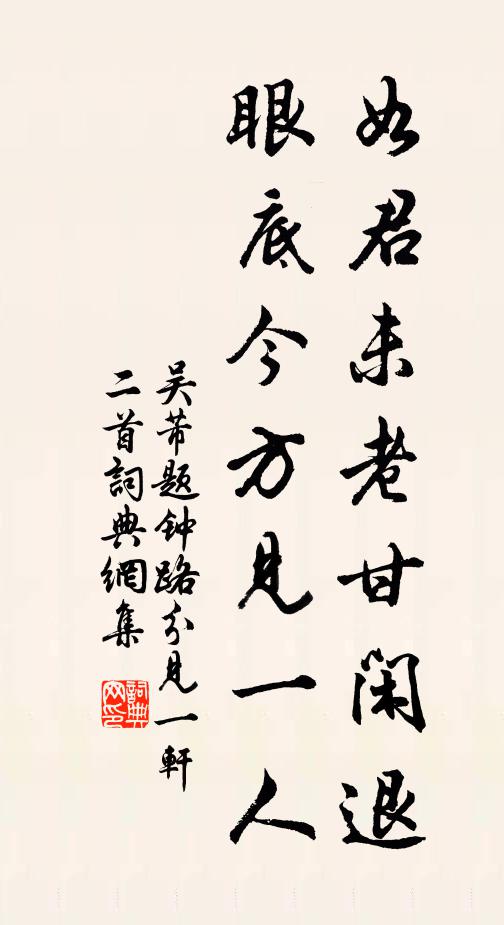 如君未老甘闲退
眼底今方见一人
吴芾题钟路分见一軒
二首詞典網集
詞典網印